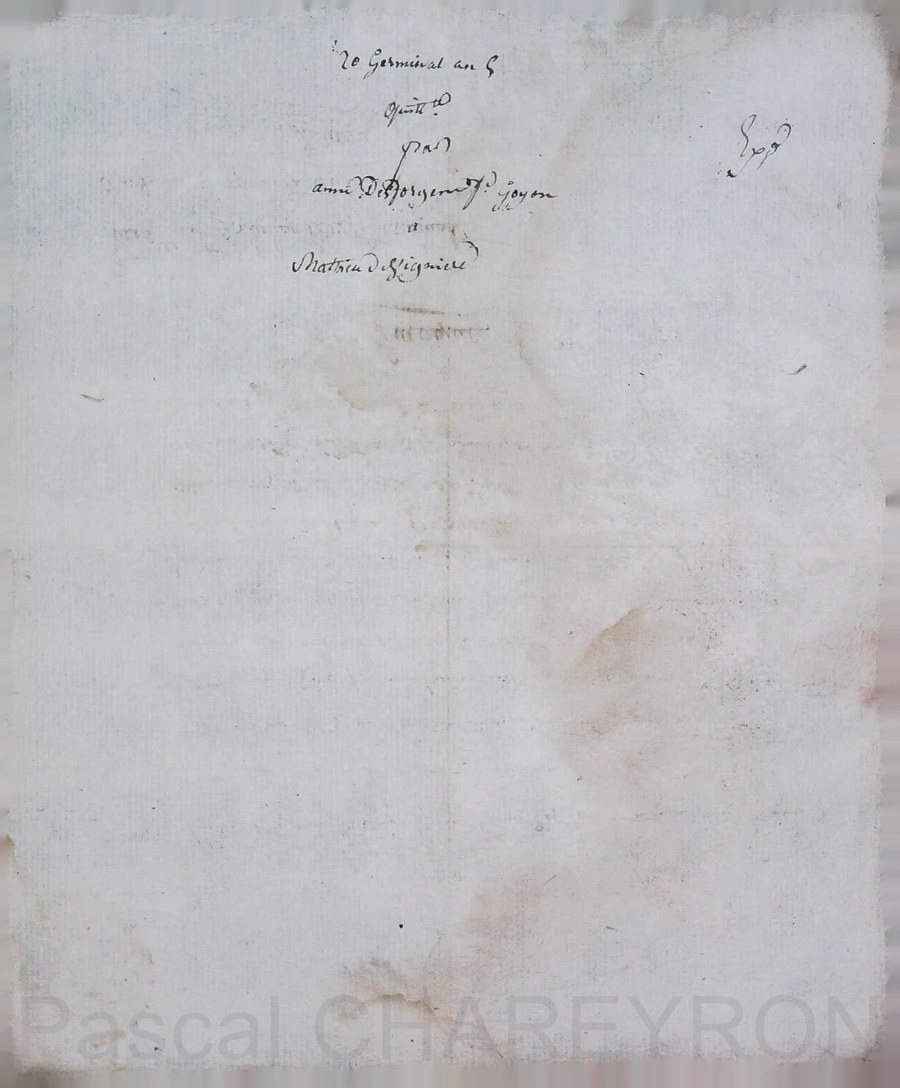 20 Germinal an 5
Quitt.ce
par
anne Desforgere f.e Goyon
a
Mathieu deSigniere
Exp.
Pascal CHAREYRON